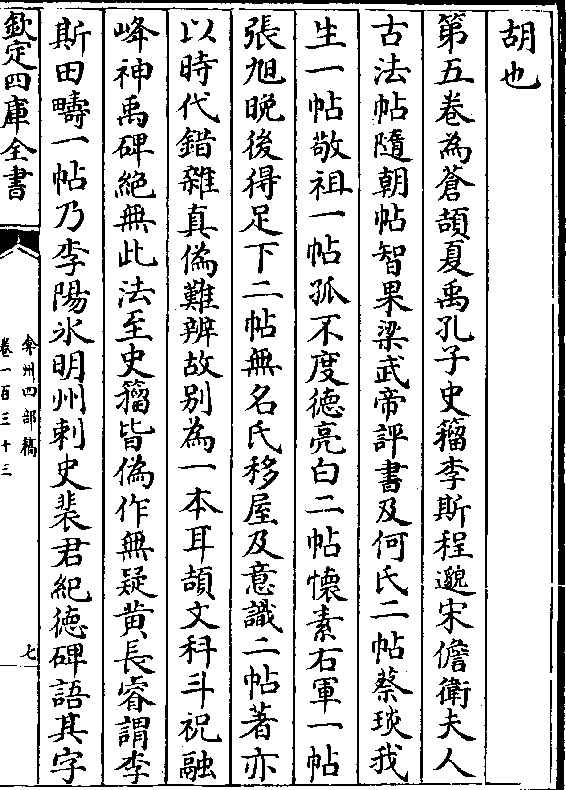 胡也
第五卷為蒼頡夏禹孔子史籀李斯程邈宋儋衛夫人
古法帖隨朝帖智果梁武帝評書及何氏二帖蔡琰我
生一帖敬祖一帖孤不度德亮白二帖懷素右軍一帖
張旭晚後得足下二帖無名氏移屋及意識二帖著亦
以時代錯雜真偽難辨故别為一本耳頡文科斗祝融
峰神禹碑絶無此法至史籀皆偽作無疑黄長睿謂李
斯田疇一帖乃李陽氷明州刺史裴君紀徳碑語其字
欽定四庫全書
弇州四部稿
卷一百三十三
七